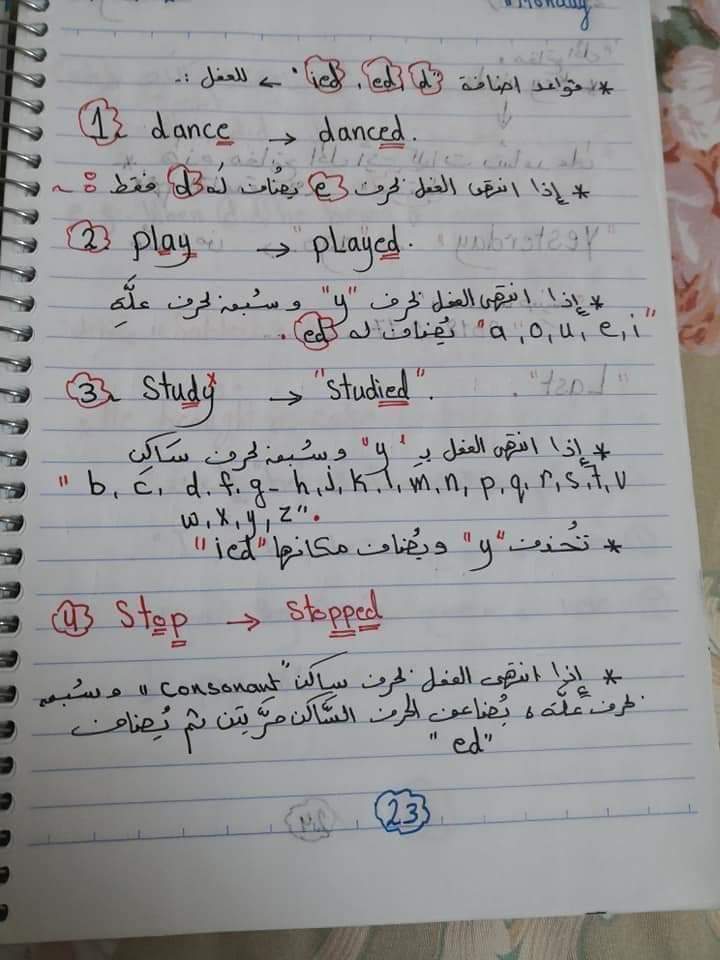 "Monday
* قواعد اضافة "d, ed, ied" → للفعل :.
1. dance → danced.
* إذا انتهى الفعل بحرف e يُضاف له d فقط :~
2. play → "played.
* إذا انتهى الفعل بحرف "y" وسُبعه بحرف علّهِ
"a, o, u, e, i" يُضاف له ed.
3. Study → "studied".
* إذا انتهى الفعل بـ "y" وسُبعه بحرف سَاكن
" b, c, d, f, g - h, j, k, l, m, n, p, q, r, s, t, v
w, x, y, z".
* تُحذف "y" ويُضاف مكانها "ied"
4 Stop → stopped
* إذا انتهى الفعل بحرف ساكن "consonant" وسُبعه
بحرف علّه، يُضاعف الحرف السَّاكن مرَّيتن ثم يُضاف
"ed"
23
24
"Yesterday"
"Last"